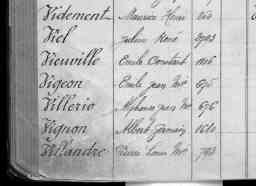 Videment Maurice Henri 860
Viel Julien René
Vieuville Emile Constant
Vigeon Emile Jean Mie 675
Villerio Alphonse Jean Mie 676
Vignon Albert Germain 1610
Villandre Pierre Louis Mie 793